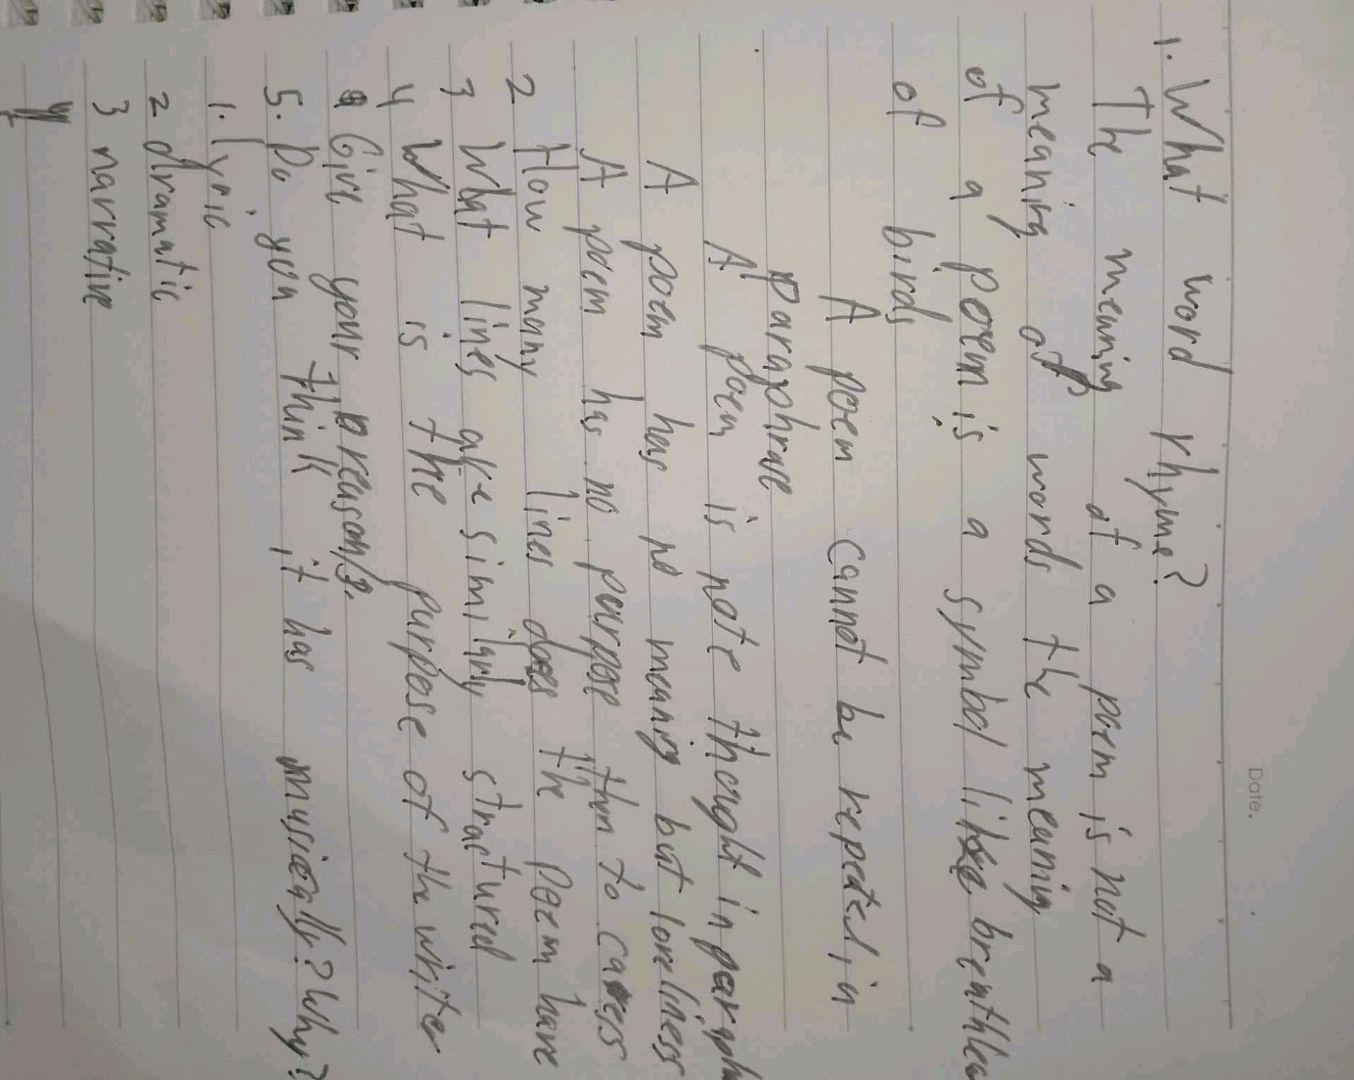 Date.
1. What word rhyme?
The meaning of a poem is not a
meaning of words the meaning
of a poem is a symbol like breathless
of birds
A poem cannot be repeated, in
paraphrase
A poem is note thought in
A poem has no meaning but loneliness
A poem has no purpose than to caress
2 How many lines does the poem have
3 What lines are similarly structured
4 What is the purpose of the writer
Give your reason/s.
5. Do you think it has musically? Why?
1. lyric
2 dramatic
3 narrative